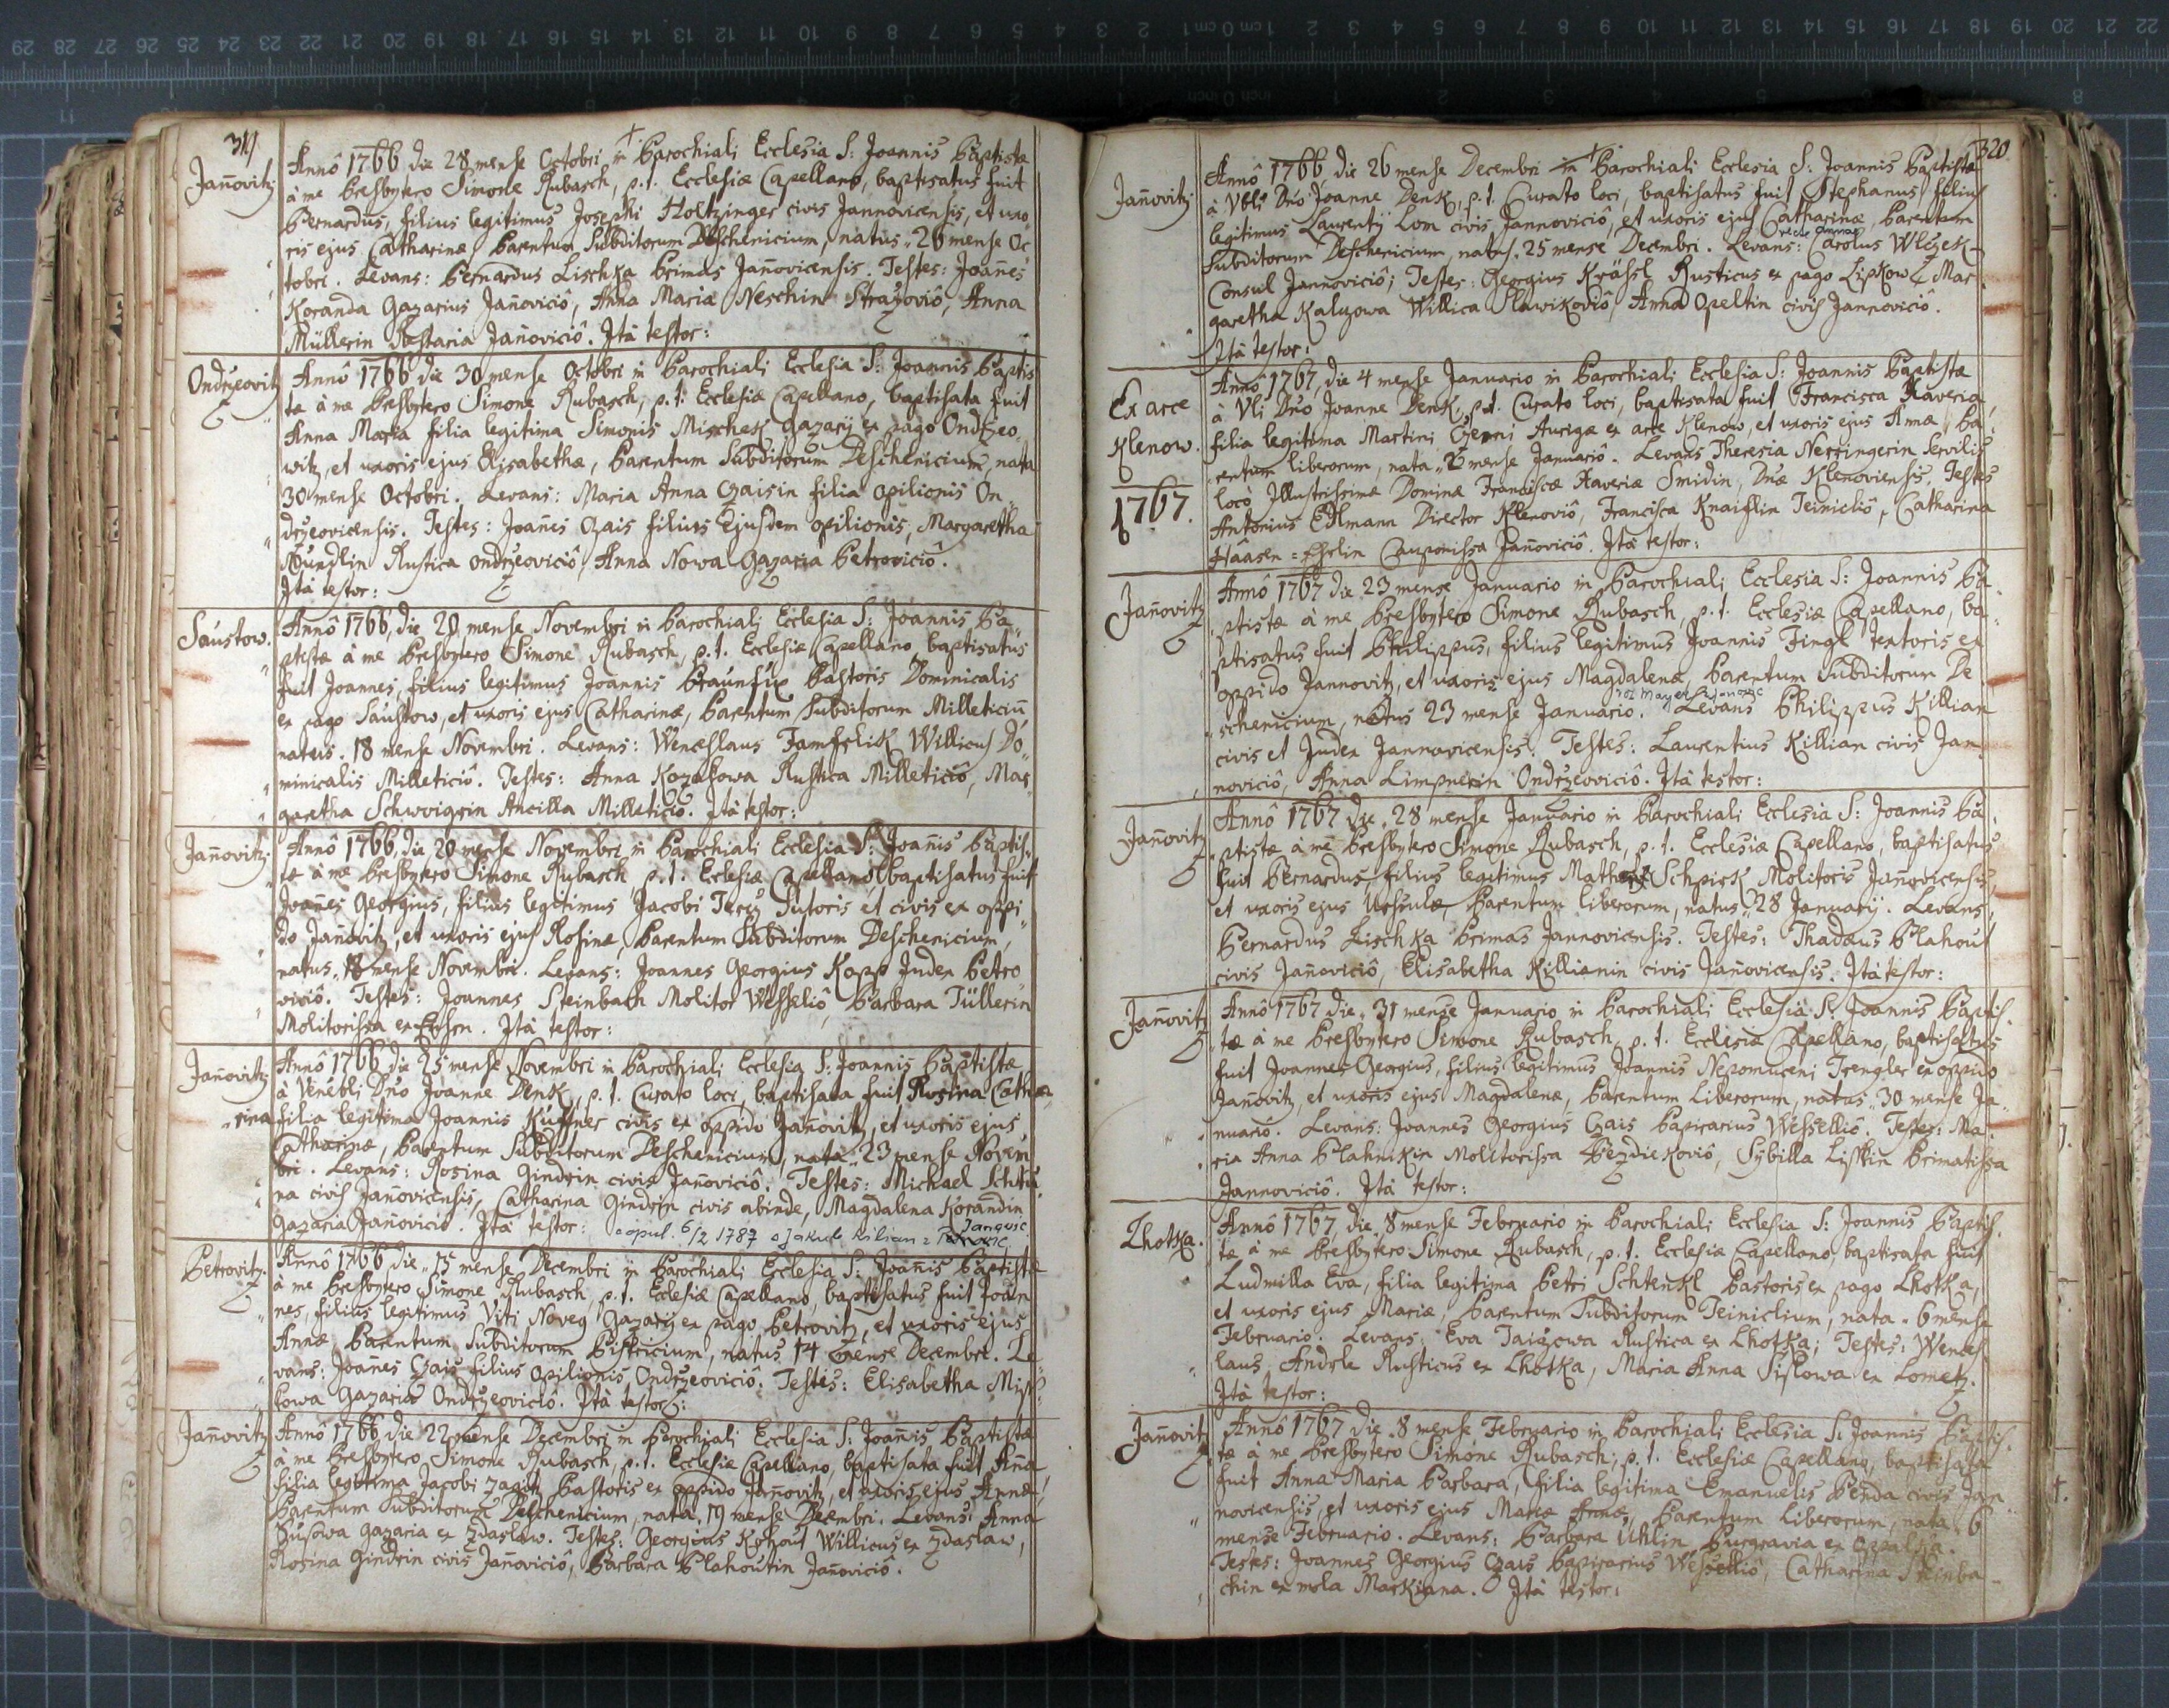 319
Jan̄ovitz.
Annô 1766 die 28 mense Octobri in Parochiali Ecclesia S: Joannis Baptistæ
à me Presbytero Simone Rubasch, p. t. Ecclesiæ Capellano, baptisatus fuit
Bernardus, filius legitimus Josephi Holtzinger civis Jannovicensis, et uxo
ris ejus Catharinæ Parentum Subditorum Deschenicium, natus 26 mense Oc
tobri. Levans: Bernardus Lischka Primas Jan̄ovicensis. Testes: Joan̄es
Koranda Gazarius Jan̄oviciô, Anna Maria Neschin Strazoviô, Anna
Müllerin Jan̄oviciô. Ità testor:
Ondrzeovitz
Annô 1766 die 30 mense Octobri in Parochiali Ecclesia S: Joannis Baptis
tæ à me Presbytero Simone Rubasch, p. t. Ecclesiæ Capellano, baptisata fuit
Anna Maria filia legitima Simonis Mischek Gazarij ex pago Ondrzeo
witz, et uxoris ejus Elisabethæ, Parentum Subditorum Deschenicium, nata
30 mense Octobri. Levans: Maria Anna Czaisin filia opilionis On
drzeovicensis. Testes: Joan̄es Czais filius Ejusdem opilionis, Margaretha
Rustica Ondrzeoviciô, Anna Nowa Gazaria Petroviciô.
Ità testor:
Saustow.
Annô 1766, die 20 mense Novembri in Parochiali Ecclesia S: Joannis Ba
ptistæ à me Presbytero Simone Rubasch, p. t. Ecclesiæ Capellano, baptisatus
fuit Joannes, filius legitimus Joannis Braunfux Pastoris Dominicalis
ex pago Saustow, et uxoris ejus Catharinæ, Parentum Subditorum Milleticiū
natus. 18 mense Novembri. Levans: Wenceslaus Willicus Do
minicalis Milleticiô. Testes: Anna Rustica Milleticiô, Mar
garetha Schwoigrin Ancilla Milleticiô. Ità testor:
Jan̄ovitz.
Annô 1766, die 20 mense Novembri in Parochiali Ecclesia S: Joan̄is Baptis
tæ à me Presbytero Simone Rubasch, p. t. Ecclesiæ Capellano, baptisatus fuit
Joan̄es Georgius, filius legitimus Jacobi Sutoris et civis ex oppi
do Jan̄ovitz, et uxoris ejus Rosinæ, Parentum Subditorum Deschenicium,
natus 18 mense Novembri. Levans: Joannes Georgius Kopp Judex Petro
viciô. Testes: Joannes Steinbach Molitor Wesseliô, Barbara Tüllerin
Molitorissa ex. Ità testor:
Jan̄ovitz
Annô 1766 die 25 mense Novembri in Parochiali Ecclesia S: Joannis Baptistæ
à Venēbli Dn̄o Joanne Denk, p. t. Curato loci, baptisata fuit Rosina Catha
rina filia legitima Joannis Küffner civis ex oppido Jan̄ovitz, et uxoris ejus
Catharinæ, Parentum Subditorum Deschenicium, nata 23 mense Novem
bri. Levans: Rosina Gindrin civis Jan̄oviciô. Testes: Michael
na civis Jan̄ovicensis, Catharina Gindrin civis abinde, Magdalena Korandin
Gazaria Jan̄oviciô. Ità testor: copul. 6/2 1787 s Jakub Kilian z Janovic
Petrovitz.
Annô 1766 die 15 mense Decembri in Parochiali Ecclesia S: Joan̄is Baptistæ
à me Presbytero Simone Rubasch, p. t. Eclesiæ Capellano, baptisatus fuit Joan
nes, filius legitimus Viti Noveg Gazarij ex pago Petrovitz, et uxoris ejus
Annæ, Parentum Subditorum Bistricium, natus 14 mense Decembri. Le
vans: Joan̄es Czais filius Opilionis Ondrzeoviciô. Testes: Elisabetha Miss
kowa Gazaria Ondrzeoviciô. Ità testor:
Jan̄ovitz
Annô 1766 die 22 mense Decembri in Parochiali Ecclesia S: Joan̄is Baptistæ
à me Presbytero Simone Rubasch, p. t. Ecclesiæ Capellano, baptisata fuit An̄a
filia legitima Jacobi Pastoris ex oppido Jan̄ovitz, et uxoris ejus Annæ,
Parentum Subditorum Deschenicium, nata 19 mense Decembri. Levans: Anna
Gazaria ex Zdaslaw. Testes: Georgius Kohout Willicus ex Zdaslaw,
Rosina Gindrin civis Jan̄oviciô, Barbara Blahoutin Jan̄oviciô.
320
Jan̄ovitz.
Annô 1766, die 26 mense Decembri in Parochiali Ecclesia S: Joannis Baptistæ
à Vbli Dn̄o Joanne Denk, p. t. Curato loci, baptisatus fuit Stephanus filius
legitimus Laurentij Lom civis Jannoviciô, et uxoris ejus Catharinæ, Parentum
Subditorum Deschenicium, natus. 25 mense Decembri. Levans: Carolus Wlczek
Consul Jannoviciô; Testes: Georgius Krässl Rusticus ex pago Lipkow, Mar
garetha Kaluzowa Willica Slawikoviô, Anna Opeltin civis Jannoviciô.
Ità testor:
Ex arce
Klenow.
1767.
Annô 1767, die 4 mense Januario in Parochiali Ecclesia S: Joannis Baptistæ
à Vli Dn̄o Joanne Denk, p. t. Curato loci, baptisata fuit Francisca Xaveria,
filia legitima Martini Czerni Aurigæ ex arce Klenow, et uxoris ejus Annæ, Pa
rentum liberorum, nata 2 mense Januariô. Levans Theresia Nerringerin servilis
loco Illustrissimæ Dominæ Franciscæ Xaveriæ Smidin, Dn̄æ Klenoviensis, Testes
Antonius Edlmann Director Klenoviô, Francisca Knaislin Teinicliô, Catharina
Hâasen= Cauponissa Jan̄oviciô. Ità testor:
Jan̄ovitz
Annô 1767 die 23 mense Januario in Parochiali Ecclesia S: Joannis Ba
ptistæ à me Presbytero Simone Rubasch, p. t. Ecclesiæ Capellano, ba
ptisatus fuit Philippus, filius legitimus Joannis Fingl textoris ex
oppido Jannovitz, et uxoris ejus Magdalenæ, Parentum Subditorum De
schenicium, natus 23 mense Januario. Levans Philippus Killian
civis et Judex Jannovicensis. Testes: Laurentius Killian civis Jan
noviciô, Anna Limpnerin Ondrzeoviciô. Ità testor:
Jan̄ovitz
Annô 1767 die 28 mense Januario in Parochiali Ecclesia S: Joannis Ba
ptistæ à me Presbytero Simone Rubasch, p. t. Ecclesiæ Capellano, baptisatus
fuit Bernardus, filius legitimus Schpirk Molitoris Jan̄ovicensis,
et uxoris ejus Ursulæ, Parentum liberorum, natus 28 Januarij. Levans,
Bernardus Lischka Primas Jannovicensis. Testes: Thadæus Blahout
civis Jan̄oviciô, Elisabetha Killianin civis Jan̄ovicensis. Ità testor:
Jan̄ovitz
Annô 1767 die 31 mense Januario in Parochiali Ecclesia S: Joannis Baptis
tæ à me Presbytero Simone Rubasch, p. t. Eclesiæ Capellano, baptisatus
fuit Joannes Georgius, filius legitimus Joannis Nepomuceni Trengler ex oppido
Jan̄ovitz, et uxoris ejus Magdalenæ, Parentum Liberorum, natus 30 mense Ja
nuariô. Levans: Joannes Georgius Czais Papirarius Wessellio. Testes: Ma
ria Anna Blahnikin Molitorissa Bezdiekoviô, Sybilla Primatissa
Jannoviciô. Ità testor:
Lhotka.
Annô 1767, die 8 mense Februario in Parochiali Ecclesia S: Joannis Baptis
tæ à me Presbytero Simone Rubasch, p. t. Ecclesiæ Capellano, baptisata fuit
Ludmilla Eva, filia legitima Petri Schtenkl Pastoris ex pago Lhotka,
et uxoris ejus Mariæ, Parentum Subditorum Teiniclium, nata 6 mense
Februario. Levans: Eva Rustica ex Lhotka; Testes: Wences
laus Andrle Rusticus ex Lhotka, Maria Anna ex Lometz.
Ità testor:
Jan̄ovitz
Annô 1767 die 8 mense Februario in Parochiali Ecclesia S: Joannis Baptis
tæ à me Presbytero Simone Rubasch, p. t. Ecclesiæ Capellano, baptisata
fuit Anna Maria Barbara, filia legitima Emanuelis Benda civis Jan
novicensis, et uxoris ejus Mariæ Annæ, Parentum Liberorum, nata 6
mense Februario. Levans: Barbara Uhlin Purgravia ex
Testes: Joannes Georgius Czais Papirarius Wessellio, Catharina Steinba
chin ex mola Markiana. Ità testor: